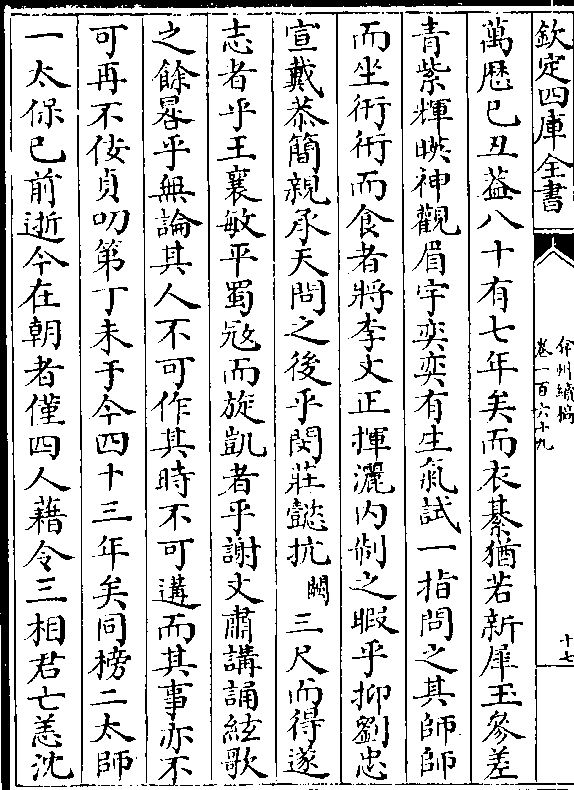 欽定四庫全書
弇州續稿
卷一百六十九
十七
萬厯已丑葢八十有七年矣而衣綦猶若新犀玉參差
青紫輝暎神觀眉宇奕奕有生氣試一指問之其師師
而坐衎衎而食者將李文正揮灑内制之暇乎抑劉忠
宣戴恭簡親承天問之後乎閔莊懿抗闕三尺而得遂
志者乎王襄敏平蜀冦而旋凱者乎謝文肅講誦絃歌
之餘畧乎無論其人不可作其時不可遘而其事亦不
可再不佞貞叨第丁未于今四十三年矣同榜二太師
一太保已前逝今在朝者僅四人藉令三相君亡恙沈